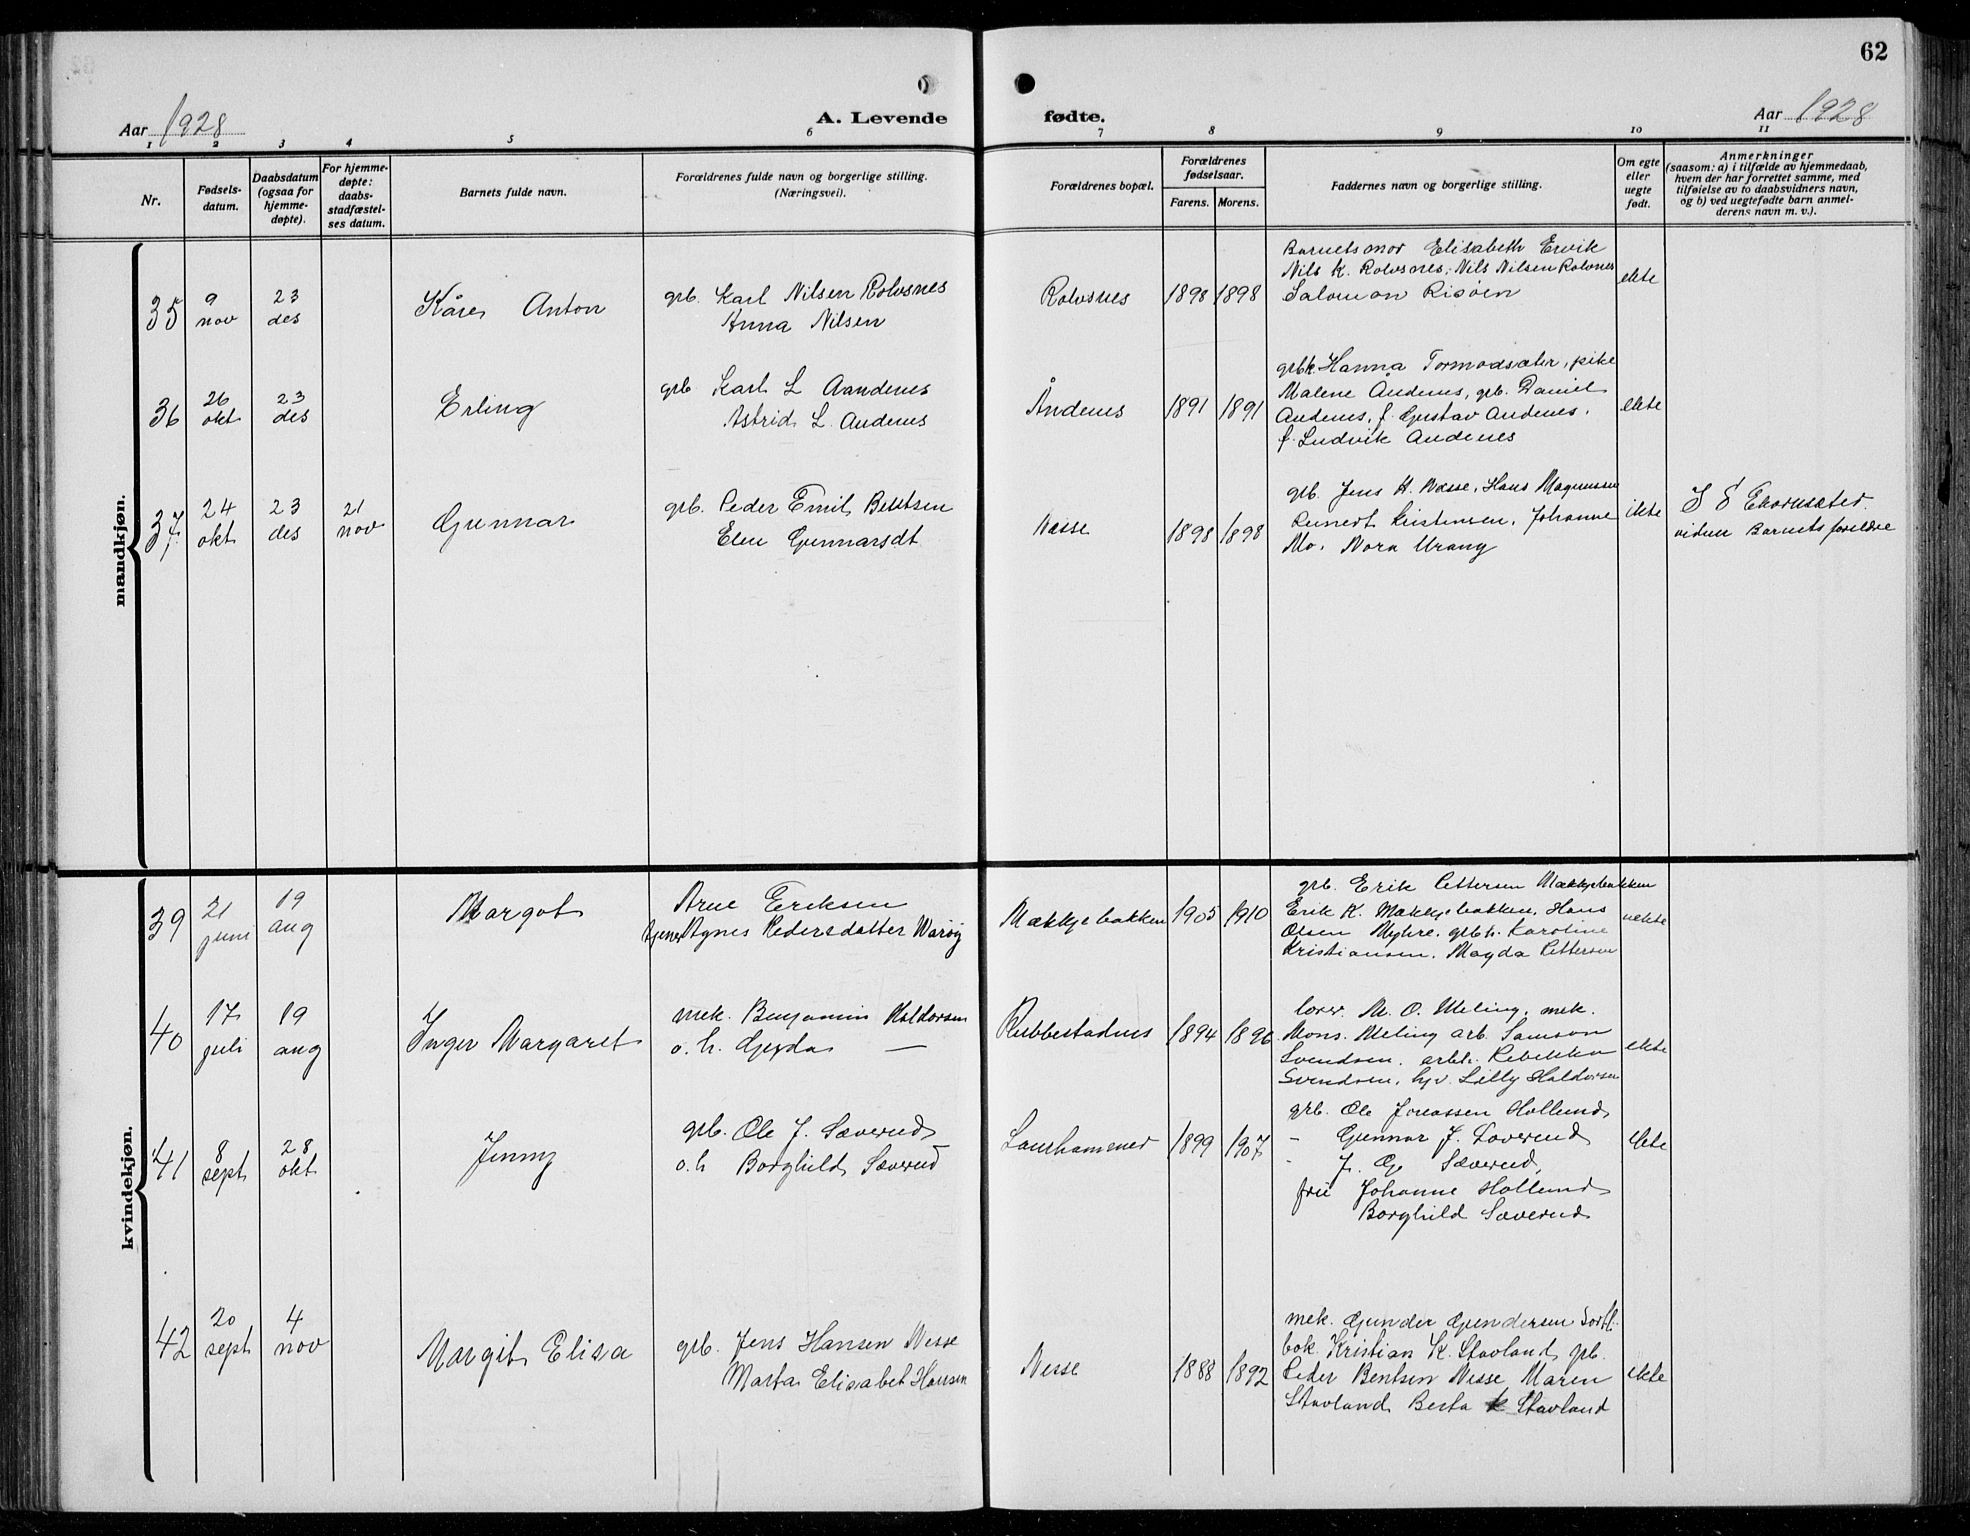 62
Aar 1928
A. Levende
fødte.
Aar 1928
1 2 3 4 5 6 7 8 9 10 11
Nr.
Fødsels-
datum.
Daabsdatum
(ogsaa for
hjemme-
døpte).
For hjemme-
døpte:
daabs-
stadfæstel-
ses datum.
Barnets fulde navn.
Forældrenes fulde navn og borgerlige stilling.
(Næringsvei).
Forældrenes bopæl.
Forældrenes
fødselsaar.
Farens. Morens.
Faddernes navn og borgerlige stilling.
Om egte
eller
uegte
født.
Anmerkninger
(saasom: a) i tilfælde av hjemmedaab,
hvem der har forrettet samme, med
tilføielse av to daabsvidners navn,
og b) ved uegtefødte barn anmel-
derens navn m. v.).
mandkjøn.
35
9
nov
23
des
Kåre Anton
grb. Karl Nilsen Rolvsnes
Anna Nilsen
Rolvsnes
1898 1898
Barnets mor Elisabeth Ervik
Nils K. Rolvsnes, Nils Nilsen Rolvsnes
Salomon Risøen
ekte
36
26
okt
23
des
Erling
grb Karl L Aandenes
Astrid L. Andenes
Åndenes
1891 1891
grbk Hanna Tormodsæter, pike
Malene Åndenes, grb. Daniel
Andenes, f. Gustav Andenes,
f. Ludvik Andenes
ekte
37
24
okt
23
des
21
nov
Gunnar
grb. Peder Emil Bentsen
Elen Gunnarsdt
Nesse
1898 1898
grb. Jens H. Nesse, Hans Magnussen
Reinert Kristensen, Johanne
Mo, Nora Urang
ekte
I S Ekornsæter
vidner Barnets foreldre
kvindekjøn.
39
21
juni
19
aug
Margot
Arne Eriksen
Agnes Pedersdatter Warøy
Mækkjebakken
1905 1910
grb. Erik Pettersen Mækkjebakken
Erik K. Mækkjebakken, Hans
Olsen Myhre, grbh. Karoline
Kristiansen, Magda Pettersen
uekte
40
17
juli
19
aug
Inger Margaret
mek. Benjamin Haldorsen
o. h. Gerda —
Rubbestadnes
1894 1896
lærer. M. O. Meling, mek.
Mons. Meling arb. Samson
Svendsen. arbh. Rebekka
Svendsen, hjv. Lilly Haldorsen
ekte
41
8
sept
28
okt
Jenny
grb. Ole J. Sæverud
o. h Borghild Sæverud
Laurhammer
1899 1907
grb. Ole Jonassen Hollund
- Gunnar J. Sæverud
- J. G Sæverud,
frk Johanne Hollund
Borghild Sæverud
ekte
42
20
sept
4
nov
Margit Elisa
grb. Jens Hansen Nesse
Marta Elisabet Hansen
Nesse
1888 1892
mek. Gunder Gundersen
bok. Kristian K. Stavland, grb.
Peder Bentsen Nesse Maren
Stavland Berta K Stavland
ekte